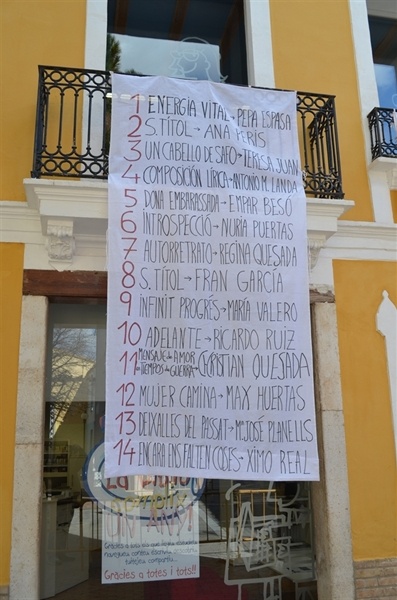 1 ENERGÍA VITAL→ PEPA ESPASA
2 S. TÍTOL→ ANA PERIS
3 UN CABELLO DE SAFO→ TERESA JUAN
4 COMPOSICIÓN LÍRICA→ANTONIO M. LANDA
5 DONA EMBARASSADA→ EMPAR BESÓ
6 INTROSPECCIÓ→ NURIA PUERTAS
7 AUTORRETRATO→ REGINA QUESADA
8 S. TÍTOL→ FRAN GARCÍA
9 INFINIT PROGRÉS→ MARÍA VALERO
10 ADELANTE→ RICARDO RUIZ
11 MENSAJE de AMOR en TIEMPOS de GUERRA→ CHRISTIAN QUESADA
12 MUJER CAMINA→ MAY HUERTAS
13 DEIXALLES DEL PASSAT→ Mª JOSÉ PLANELLS
14 ENCARA ENS FALTEN COSES→ XIMO REAL
UN ANY
Gràcies a totes i tots!!